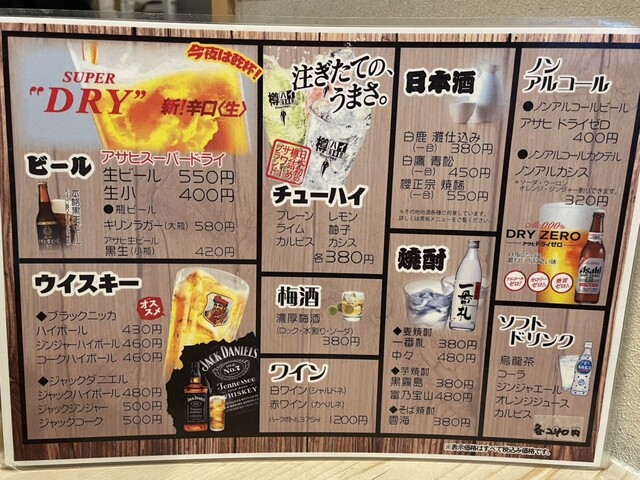 SUPER
"DRY"
今夜は乾杯!
新!辛口〈生〉
ビール
アサヒスーパードライ
生ビール 550円
生小 400円
●瓶ビール
キリンラガー(大瓶) 580円
アサヒ生ビール
黒生(小瓶) 420円
ウイスキー
オススメ
◆ブラックニッカ
ハイボール 430円
ジンジャーハイボール 460円
コークハイボール 460円
◆ジャックダニエル
ジャックハイボール 480円
ジャックジンジャー 500円
ジャックコーク 500円
JACK DANIEL'S
Tennessee
WHISKEY
注ぎたての、
うまさ。
樽ハイ
チューハイ
プレーン レモン
ライム 柚子
カルピス カシス
各380円
梅酒
濃厚梅酒
(ロック・水割り・ソーダ)
380円
ワイン
白ワイン(シャルドネ)
赤ワイン(カベルネ)
ハーフボトル375ml 1200円
日本酒
白鹿 灘仕込み
(一合) 380円
白鷹 青松
(一合) 450円
櫻正宗 焼稀
(一合) 550円
焼酎
一番札
◆麦焼酎
一番札 380円
中々 480円
◆芋焼酎
黒霧島 380円
富乃宝山 480円
◆そば焼酎
雲海 380円
ノン
アルコール
●ノンアルコールビール
アサヒ ドライゼロ
400円
●ノンアルコールカクテル
ノンアルカシス
320円
Alc.0.00%
DRY ZERO
アサヒドライゼロ
アルコールゼロ!
カロリーゼロ!
糖質ゼロ!
Asahi
ソフト
ドリンク
烏龍茶
コーラ
ジンジャエール
オレンジジュース
カルピス
各240円
※表示価格はすべて税込み価格です。